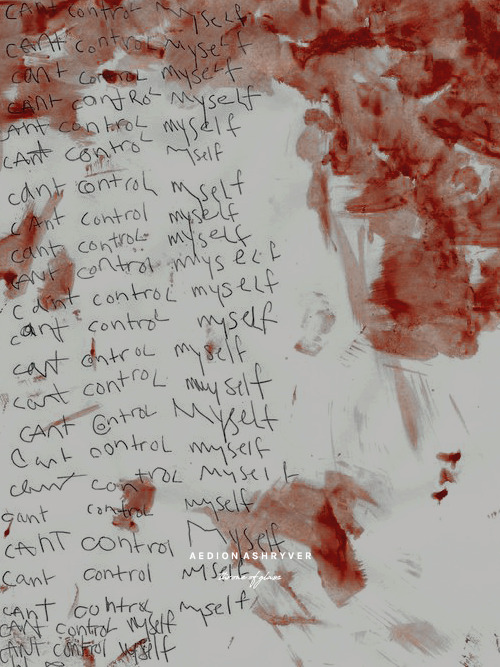 CAnt control Myself
CANt control Myself
cant control myself
CANT contRol MyselF
ANt control myself
cAnt control Myself
cant control myself
cAnt control myself
cant control myself
CANT control mysElf
Cant control myself
cant control myself
cant control myself
cant control myself
CANT control Myself
Cant control myself
cant control Myself
cant control myself
CAnT control Myself
Cant control Myself
CANT control myself
CANT control Myself
CANT control Myself
AEDION ASHRYVER
throne of glass